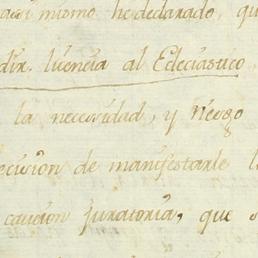 asi mismo he declarado, qu
dir. licencia al Eclesiastico,
la necesidad, y riesgo
ecision de manifestarle l
caucion juratoria, que s